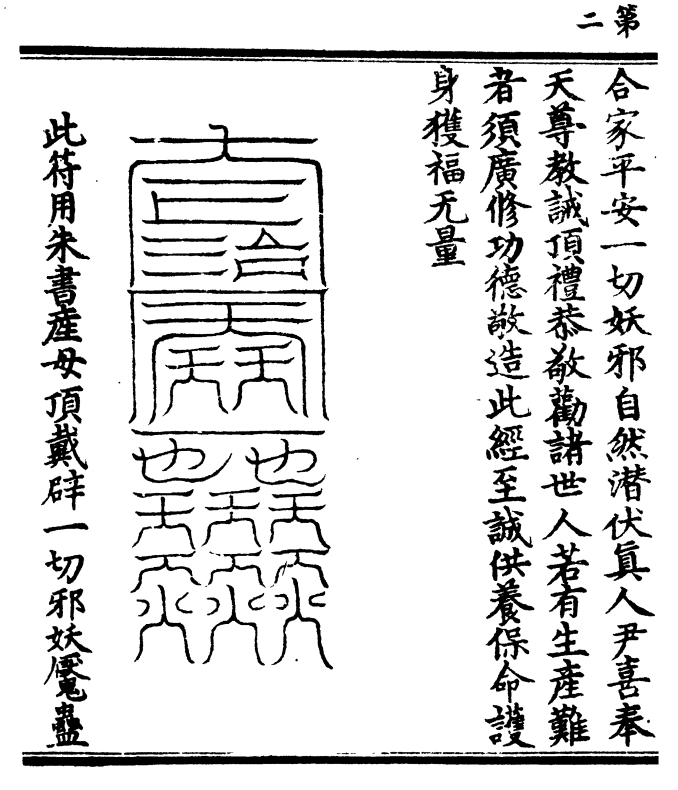 第二
合家平安一切妖邪自然潜伏眞人尹喜奉
天尊教誡頂禮恭敬勸諸世人若有生產難
者須廣修功德敬造此經至誠供養保命護
身獲福无量
此符用朱書產母頂戴辟一切邪妖魘蠱